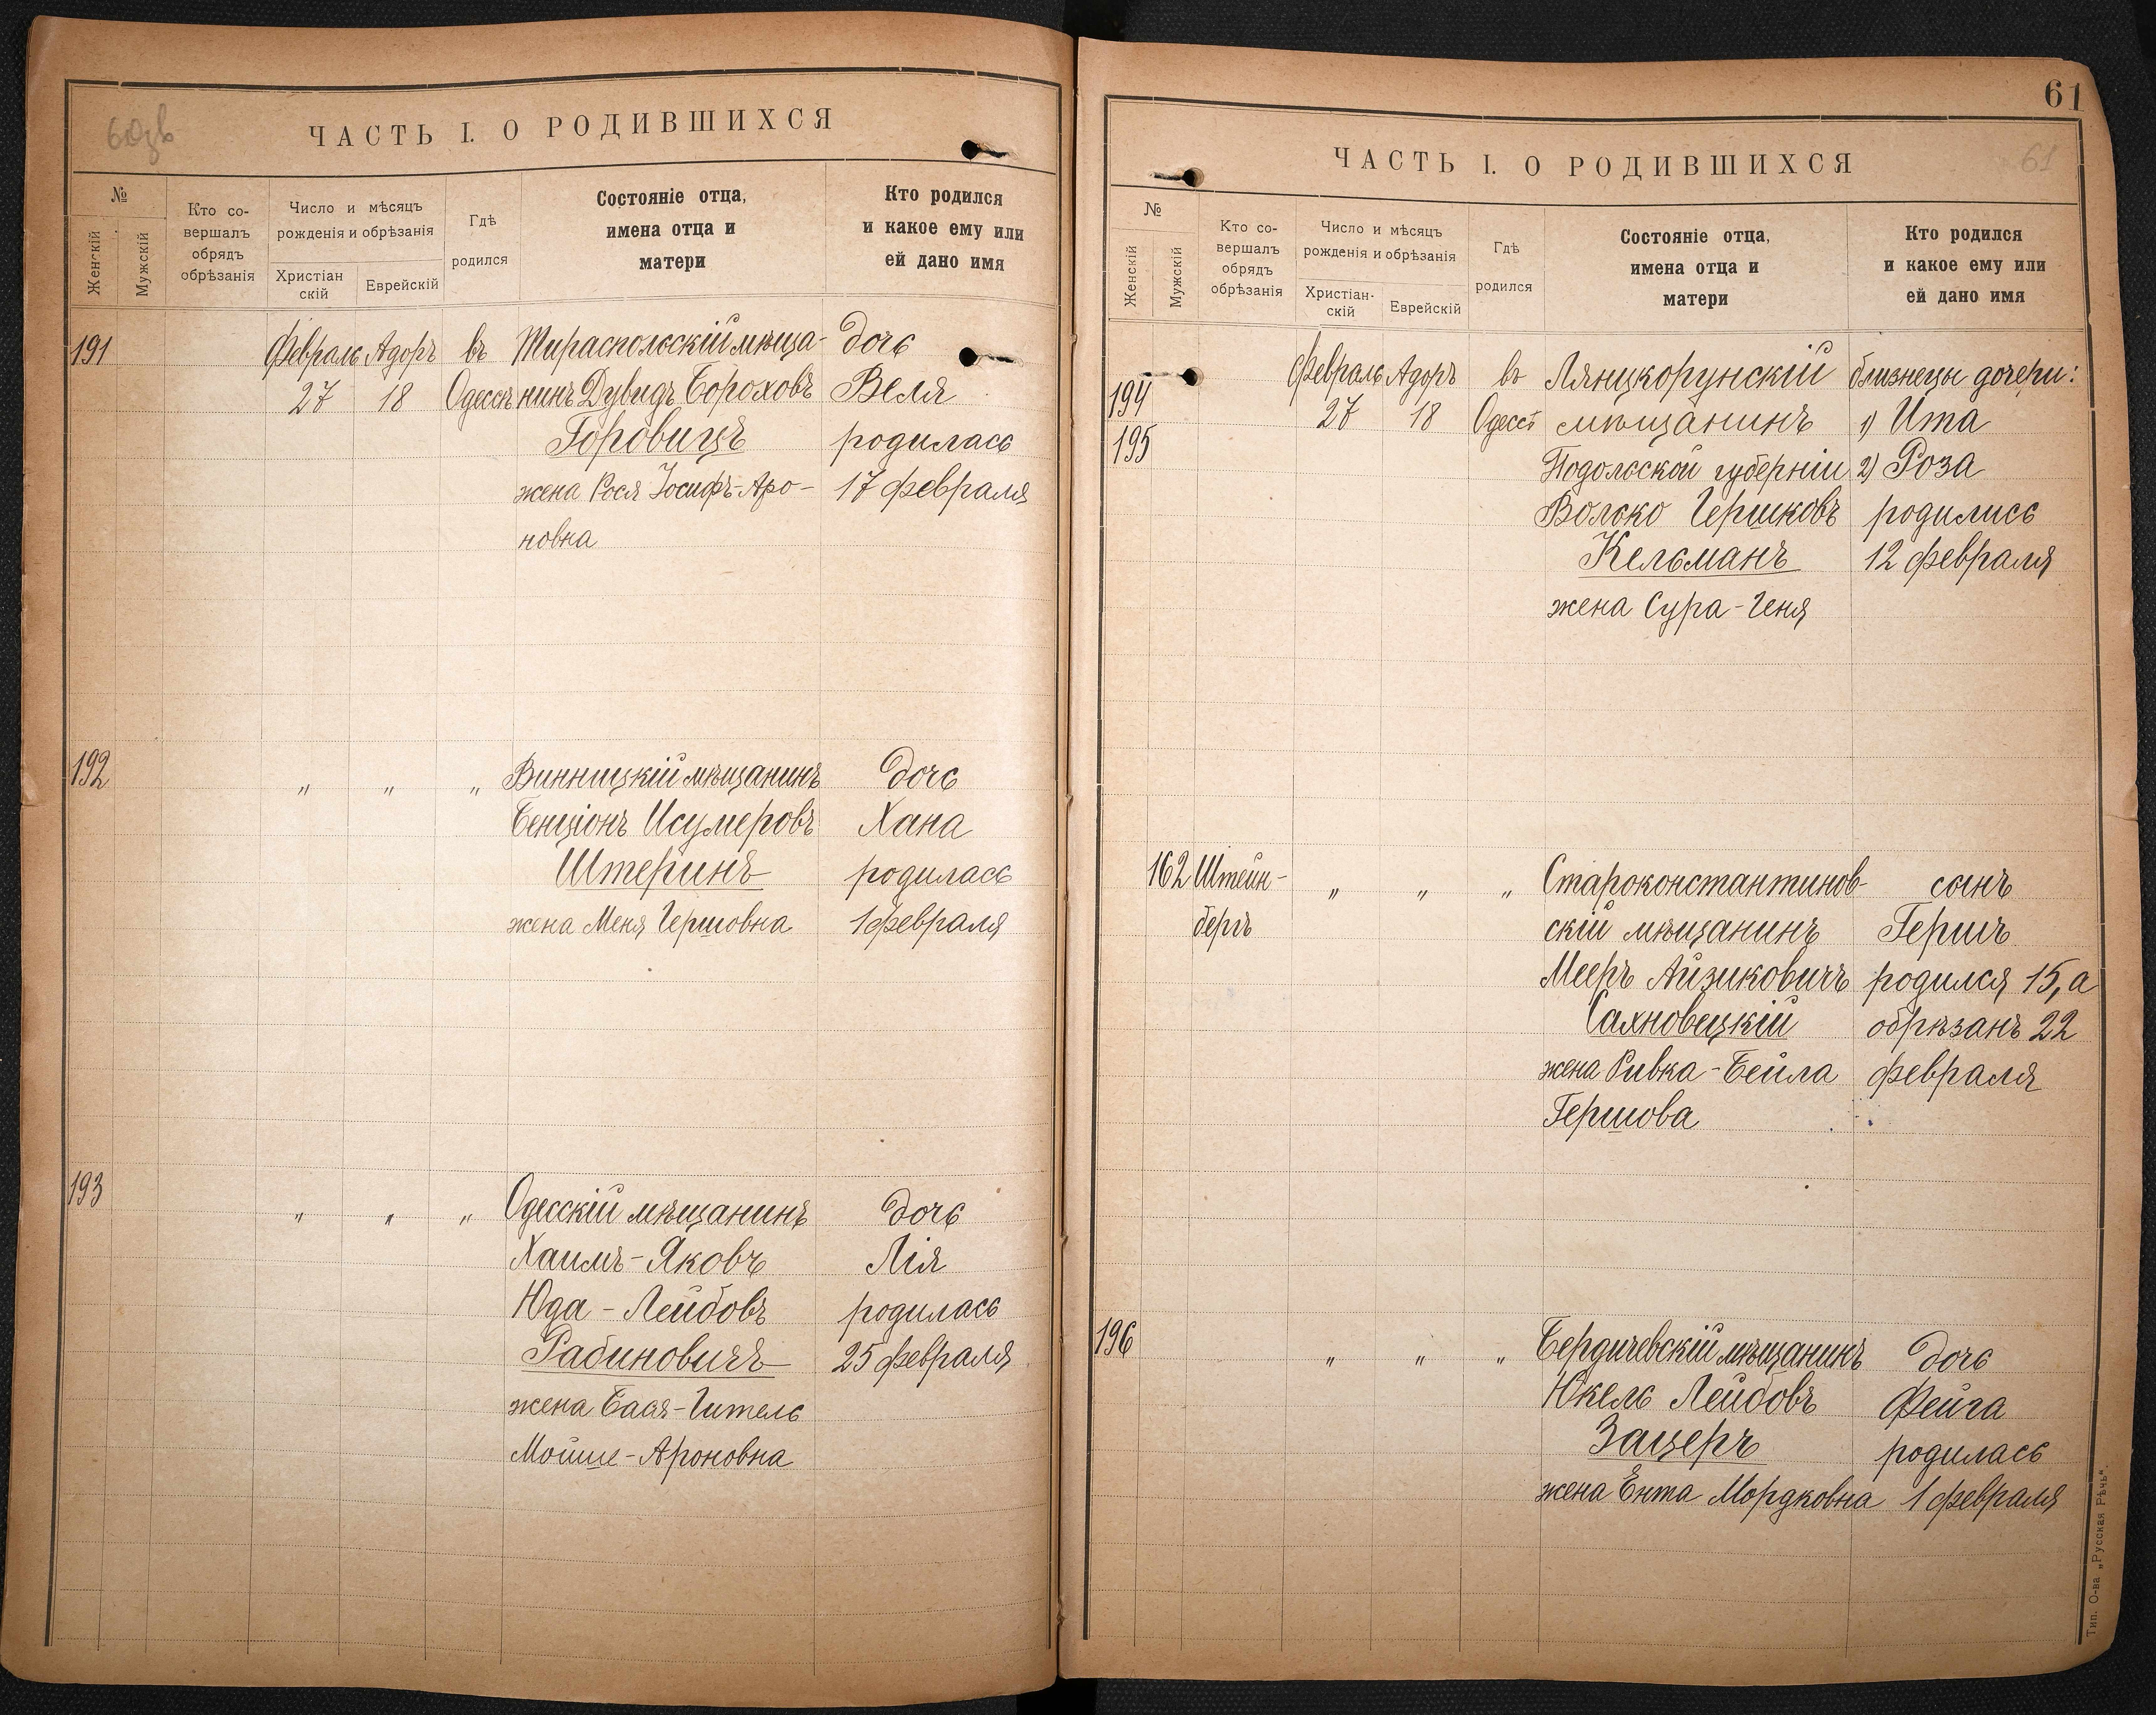 60зв
ЧАСТЬ I. О РОДИВШИХСЯ
№
Женскій
Мужскій
Кто со-
вершалъ
обрядъ
обрѣзанія
Число и мѣсяцъ
рожденія и обрѣзанія
Христіан
скій
Еврейскій
Гдѣ
родился
Состояніе отца,
имена отца и
матери
Кто родился
и какое ему или
ей дано имя
191 Февраль Адоръ въ Тираспольскій мѣща- дочь
27 18 Одессѣ нинъ Дувидъ Бороховъ Веля
Горовицъ родилась
жена Рося Іосифъ-Аро- 17 февраля
новна
192 " " " Винницкій мѣщанинъ дочь
Бенціонъ Исумеровъ Хана
Штеринъ родилась
жена Меня Гершовна 1 февраля
193 " " " Одесскій мѣщанинъ дочь
Хаимъ-Яковъ Лія
Юда-Лейбовъ родилась
Рабиновичъ 25 февраля
жена Бася-Гитель
Мойше-Ароновна
61
ЧАСТЬ I. О РОДИВШИХСЯ
61
№
Женскій
Мужскій
Кто со-
вершалъ
обрядъ
обрѣзанія
Число и мѣсяцъ
рожденія и обрѣзанія
Христіан-
скій
Еврейскій
Гдѣ
родился
Состояніе отца,
имена отца и
матери
Кто родился
и какое ему или
ей дано имя
194 Февраль Адоръ въ Лянцкорунскій близнецы дочери:
27 18 Одессѣ мѣщанинъ 1) Ита
195 Подольской губерніи 2) Роза
Волько Гершковъ родились
Кельманъ 12 февраля
жена Сура-Геня
162 Штейн- " " " Староконстантинов- сынъ
бергъ скій мѣщанинъ Гершъ
Мееръ Айзиковичъ родился 15, а
Сахновецкій обрѣзанъ 22
жена Ривка-Бейла февраля
Гершова
196 " " " Бердичевскій мѣщанинъ дочь
Юкель Лейбовъ Фейга
Зацеръ родилась
жена Ента Мордковна 1 февраля
Тип. О-ва „Русская Рѣчь".